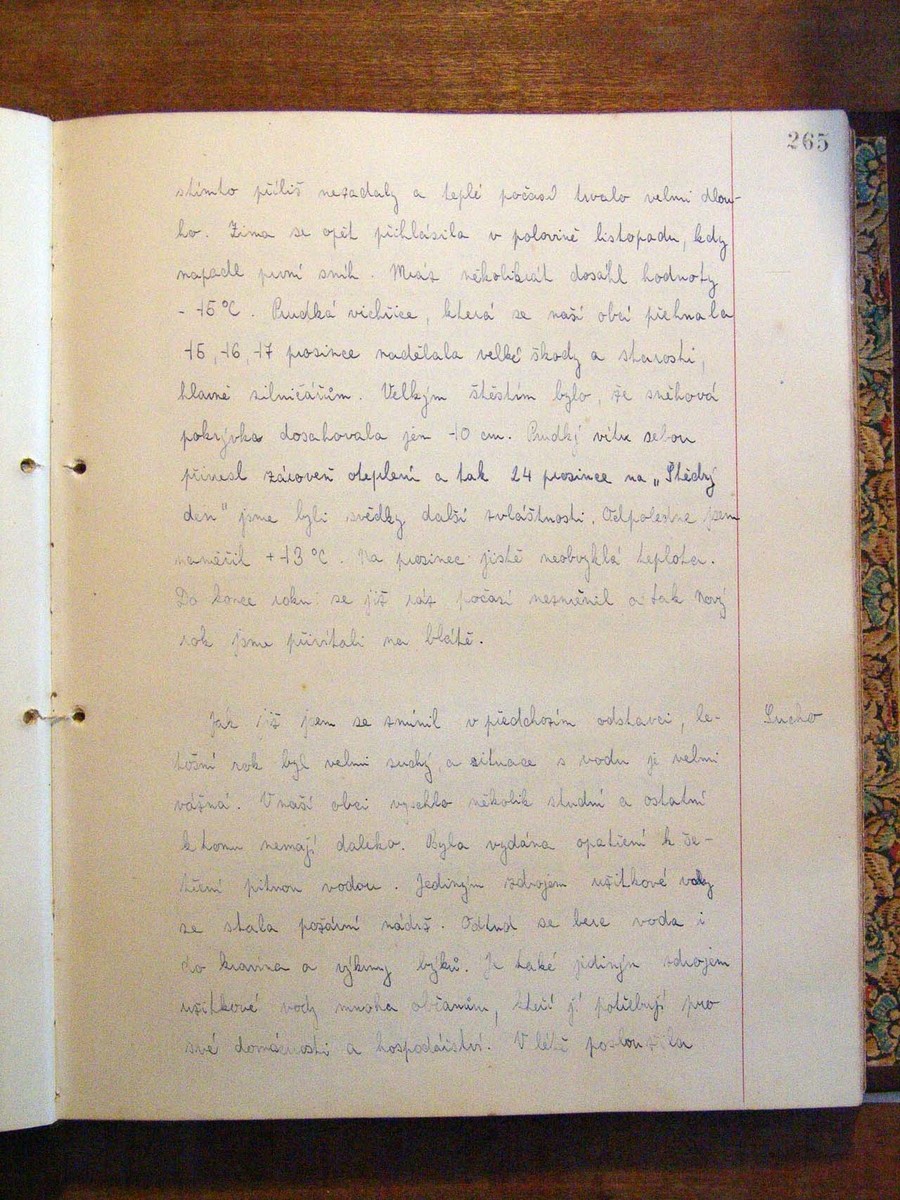 265
stímto příliš nezadaly a teplé počasí trvalo velmi dlou-
ho. Zima se opět přihlásila v polovině listopadu, kdy
napadl první sníh. Mráz několikrát dosáhl hodnoty
- 15 °C. Prudká vichřice, která se naší obcí přehnala
15, 16, 17 prosince nadělala velké škody a starosti,
hlavně silničářům. Velkým štěstím bylo, že sněhová
pokrývka dosahovala jen 10 cm. Prudký vítr sebou
přinesl zároveň oteplení a tak 24 prosince na „Štědrý
den" jsme byli svědky další zvláštnosti. Odpoledne jsem
naměřil + 13 °C. Na prosinec jistě neobvyklá teplota.
Do konce roku se již ráz počasí nezměnil a tak Nový
rok jsme přivítali na blátě.
Jak již jsem se zmínil v předchozím odstavci, le-
Sucho
tošní rok byl velmi suchý a situace s vodu je velmi
vážná. V naší obci vyschlo několik studní a ostatní
k tomu nemají daleko. Byla vydána opatření k še-
tření pitnou vodou. Jediným zdrojem užitkové vody
se stala požární nádrž. Odtud se bere voda i
do kravína a výkrmy býků. Je také jediným zdrojem
užitkové vody mnoha občanům, kteří jí potřebují pro
své domácnosti a hospodářství. V létě posloužila